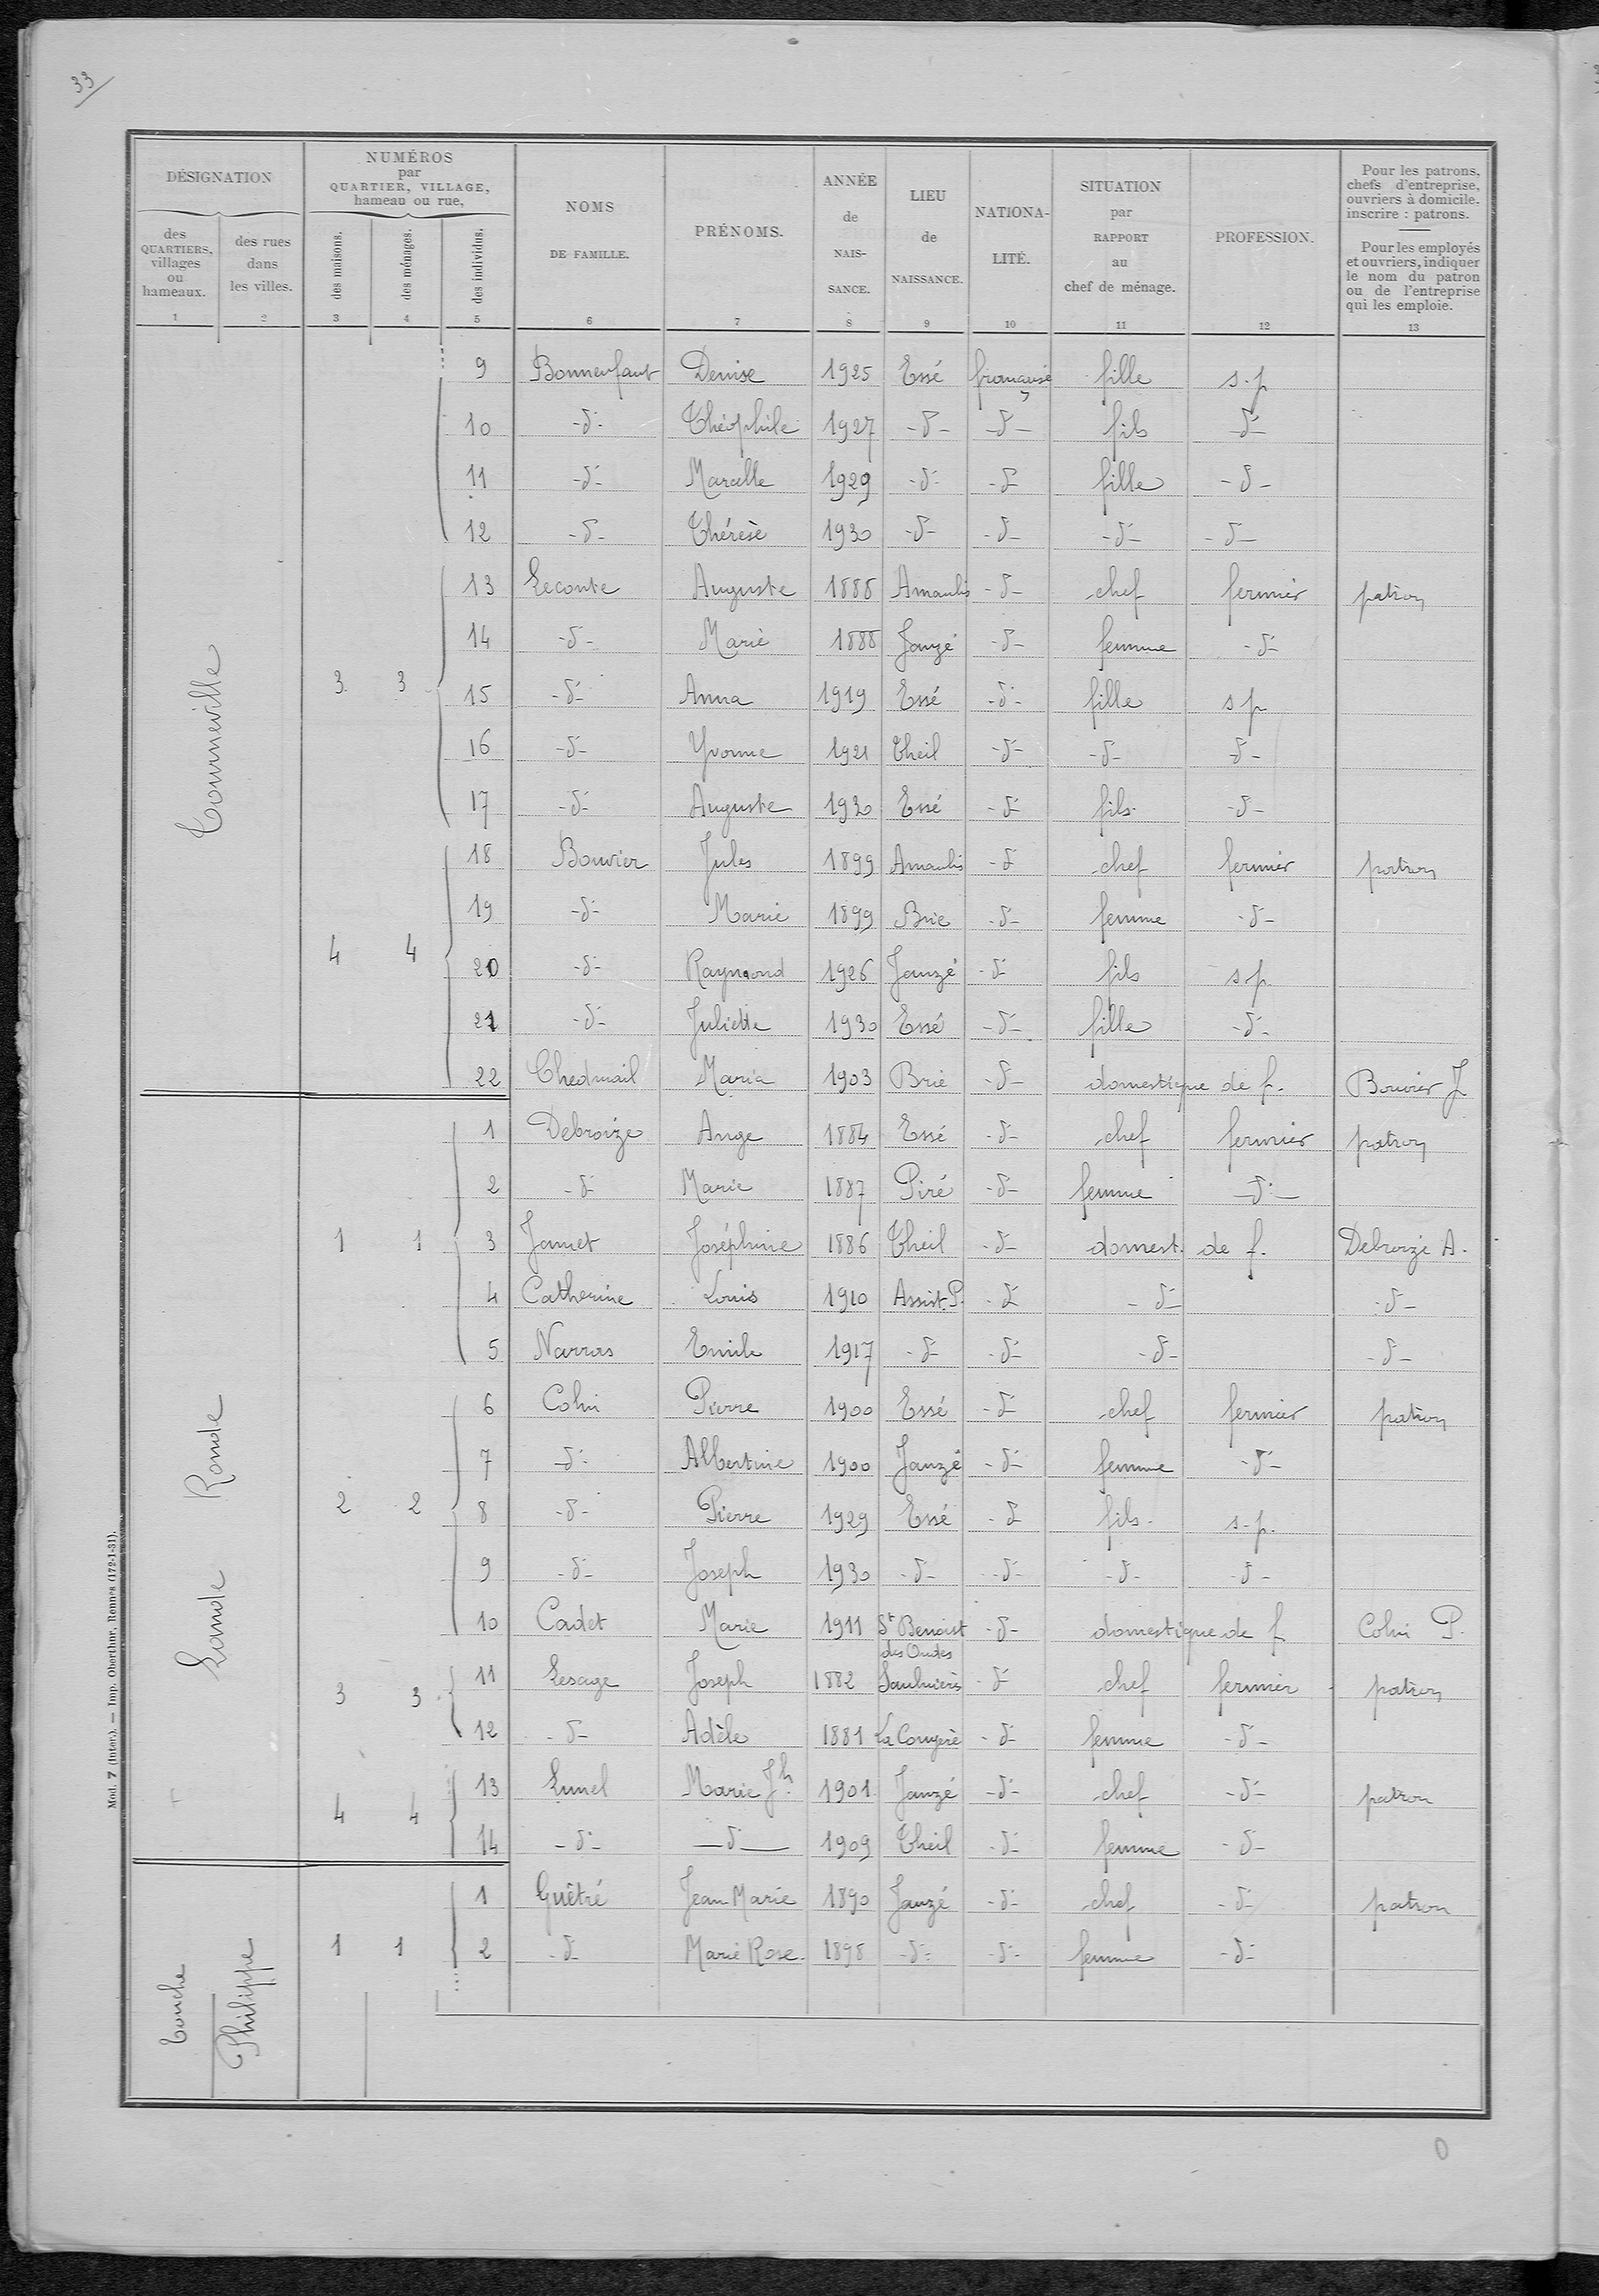 33
DÉSIGNATION
des QUARTIERS, villages ou hameaux. 1
des rues dans les villes. 2
NUMÉROS par QUARTIER, VILLAGE, hameau ou rue.
des maisons. 3
des ménages. 4
des individus. 5
NOMS DE FAMILLE. 6
PRÉNOMS. 7
ANNÉE de NAIS-SANCE. 8
LIEU de NAISSANCE. 9
NATIONA-LITÉ. 10
SITUATION par RAPPORT au chef de ménage. 11
PROFESSION. 12
Pour les patrons, chefs d'entreprise, ouvriers à domicile. inscrire : patrons.
Pour les employés et ouvriers, indiquer le nom du patron ou de l'entreprise qui les emploie. 13
Tourneville
9 Bonnenfant Denise 1925 Essé française fille s.p
10 -d- Théophile 1927 -d- -d- fils -d-
11 -d- Marcelle 1929 -d- -d- fille -d-
12 -d- Thérèse 1930 -d- -d- -d- -d-
13 Leconte Auguste 1888 Amanlis -d- chef fermier patron
14 -d- Marie 1888 Janzé -d- femme -d-
3 3 15 -d- Anna 1919 Essé -d- fille s p
16 -d- Yvonne 1921 Theil -d- -d- -d-
17 -d- Auguste 1930 Essé -d- fils -d-
18 Bouvier Jules 1899 Amanlis -d- chef fermier patron
19 -d- Marie 1899 Brie -d- femme -d-
4 4 20 -d- Raymond 1926 Janzé -d- fils s.p.
21 -d- Juliette 1930 Essé -d- fille -d-
22 Chedmail Maria 1903 Brie -d- domestique de f. Bouvier J
Lande Ronde
1 Debroize Ange 1884 Essé -d- chef fermier patron
2 -d- Marie 1887 Piré -d- femme -d-
1 1 3 Jamet Joséphine 1886 Theil -d- domest. de f. Debroize A.
4 Catherine Louis 1910 Assist. P. -d- -d- -d-
5 Narras Emile 1917 -d- -d- -d- -d-
6 Colin Pierre 1900 Essé -d- chef fermier patron
7 -d- Albertine 1900 Janzé -d- femme -d-
2 2 8 -d- Pierre 1929 Essé -d- fils s.p.
9 -d- Joseph 1930 -d- -d- -d- -d-
10 Cadet Marie 1911 St Benoist des Ondes -d- domestique de f Colin P.
3 3 11 Lesage Joseph 1882 Saulnières -d- chef fermier patron
12 -d- Adèle 1881 La Couyère -d- femme -d-
4 4 13 Lunel Marie Jh 1901 Janzé -d- chef -d- patron
14 -d- -d- 1909 Theil -d- femme -d-
Touche Philippe
1 Guêtré Jean Marie 1890 Janzé -d- chef -d- patron
1 1 2 -d- Marie Rose 1898 -d- -d- femme -d-
Mod. 7 (Inter.). — Imp. Oberthur, Rennes (172-1-31).
0